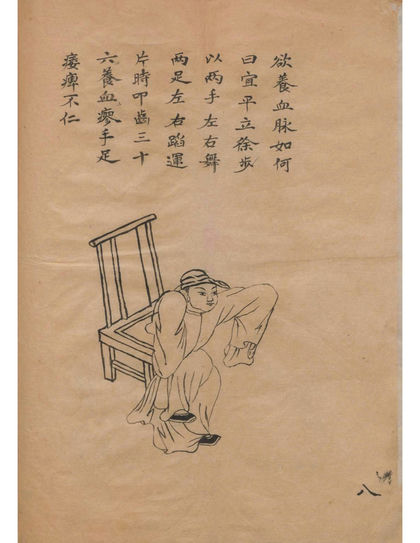 欲養血脉如何
曰宜平立徐步
以兩手左右舞
兩足左右蹈運
片時叩齒三十
六養血療手足
痿痺不仁
八